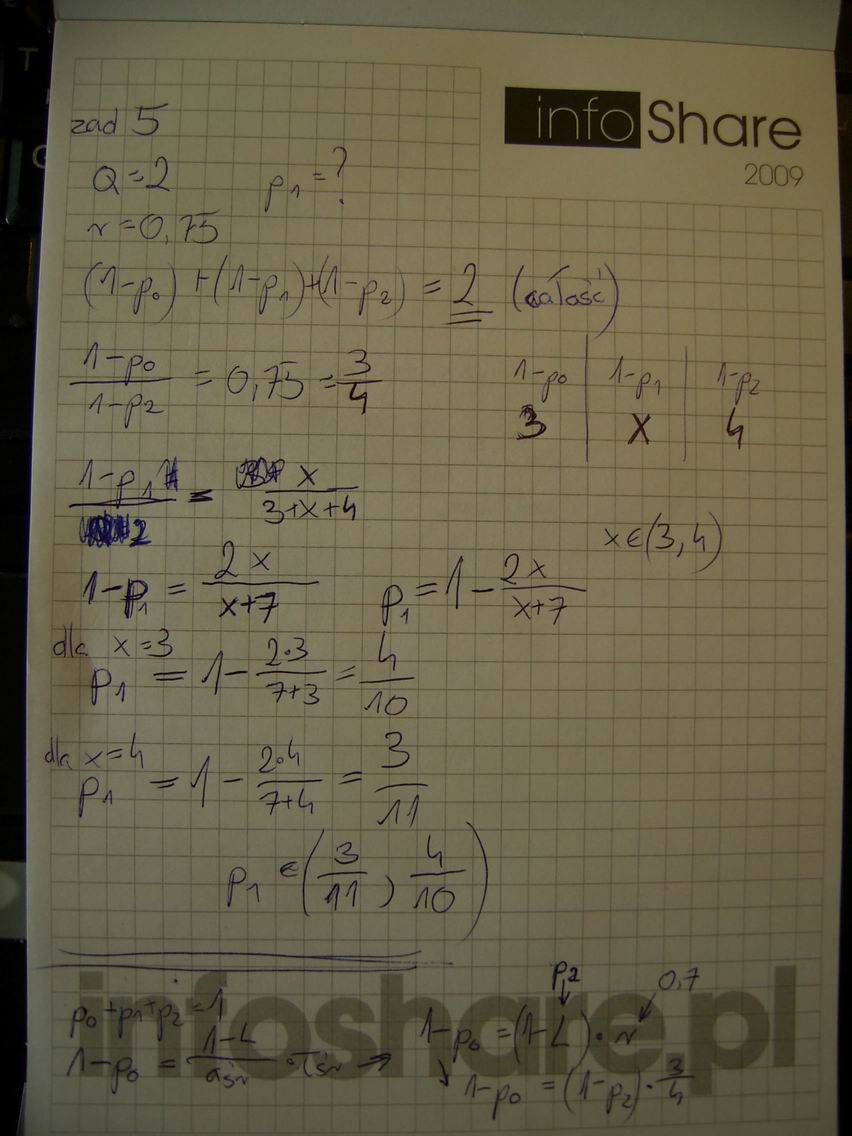 infoShare
2009
zad 5
Q=2 p₁=?
r=0,75
(1-p₀)+(1-p₁)+(1-p₂) = 2 (całość)
1-p₀/1-p₂ = 0,75 = 3/4
1-p₀ | 1-p₁ | 1-p₂
3 | x | 4
1-p₁/2 = x/3+x+4
x∈(3,4)
1-p₁ = 2x/x+7 p₁ = 1 - 2x/x+7
dla x=3
p₁ = 1 - 2·3/7+3 = 4/10
dla x=4
p₁ = 1 - 2·4/7+4 = 3/11
p₁ ∈ (3/11, 4/10)
infoshare.pl
p₂ 0,7
p₀+p₁+p₂=1
1-p₀ = 1-L/aśr · τśr → 1-p₀ = (1-L)·r
1-p₀ = (1-p₂)·3/4